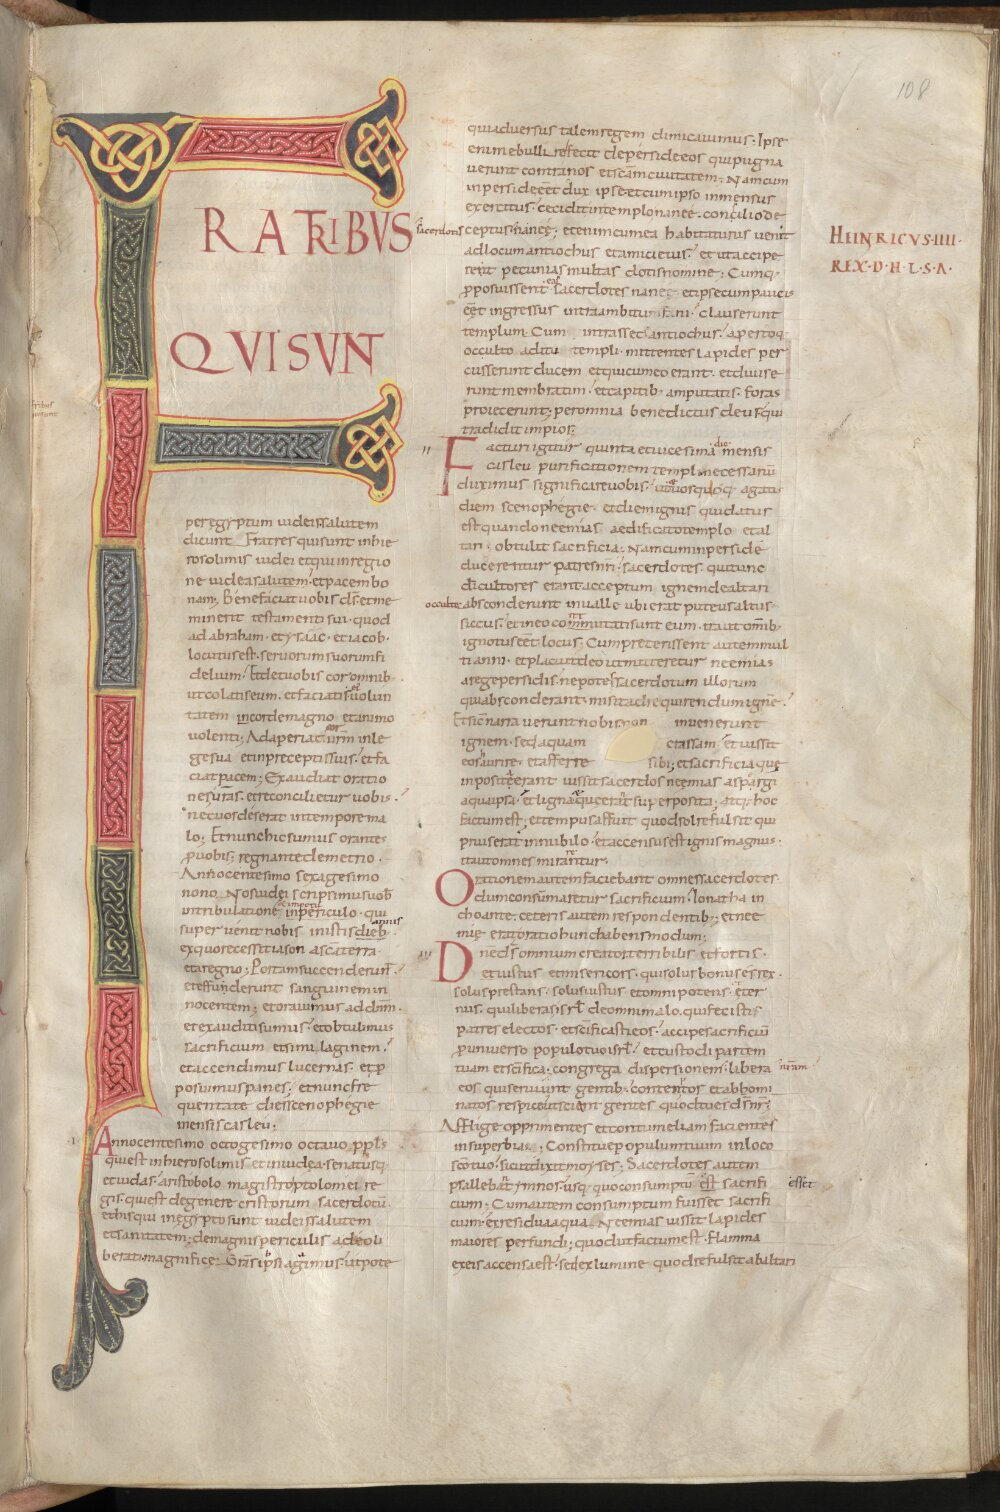 108
F
RATRIBUS
QVISVNT
per egyptum iudeis salutem
dicunt. Fratres qui sunt inhie
rosolimis iudei et qui inregio
ne iudea salutem et pacem bo
nam; Benefaciat uobis ds et me
minerit testamenti sui quod
ad abraham et ysaac et iacob
locutus est seruorum suorum fi
delium; Et det uobis cor omnib
ut colatis eum et faciatis uolun
tatem in corde magno et animo
uolenti; Adaperiat cor urm in le
ge sua et in preceptis suis et fa
ciat pacem; Exaudiat oratio
nes uras et reconcilietur uobis
nec uos deserat in tempore ma
lo; Et nunc hic sumus orantes
p uobis; regnante demetrio
Anno centesimo sexagesimo
nono Nos iudei scripsimus uob
in tribulatione in periculo qui
super uenit nobis in istis dieb
annis
ex quo recessit iason a sca terra
et a regno; Portam succenderunt
et effunderunt sanguinem in
nocentem; et orauimus ad dnm
et exauditi sumus et obtulimus
sacrificium et similaginem
et accendimus lucernas et p
posuimus panes; et nunc fre
quentate dies scenophegie
mensis casleu;
I
Anno centesimo octogesimo octauo ppls
qui est in hierosolimis et in iudea senatusq;
et iudas aristobolo magistro ptolomei re
gis qui est de genere cristorum sacerdotu
et his qui in egypto sunt iudeis salutem
et sanitatem; de magnis periculis a deo li
berati magnifice; Gras ipsi agimus ut pote
qui aduersus talem regem dimicauimus. Ipse
enim ebullire fecit de perside eos qui pugna
uerunt contra nos et scam ciuitatem; Nam cum
in perside eet dux ipse et cum ipso inmensus
exercitus cecidit in templo nanee concilio de
sacerdotis
ceptus nanee; etenim cum ea habitaturus uenit
ad locum antiochus et amici eius et ut accipe
rent pecunias multas dotis nomine; Cumq;
pposuissent eas sacerdotes nanee et ipse cum paucis
eet ingressus intra ambitum fani clauserunt
templum Cum intrasset antiochus apertoq;
occulto aditu templi mittentes lapides per
cusserunt ducem et qui cum eo erant et diuise
runt membratim et capitib amputatis foras
proiecerunt; per omnia benedictus deus qui
tradidit impios;
II
Facturi igitur quinta et uicesima die mensis
casleu purificationem templi necessariu
duximus significare uobis ut uos quoq; agatis
diem scenophegie et diem ignis qui datus
est quando neemias aedificato templo et al
tari obtulit sacrificia; Nam cum in persidem
ducerentur patres nri sacerdotes qui tunc
di cultores erant acceptum ignem de altari
occulte
absconderunt in ualle ubi erat puteus altus
siccus et in eo contutati sunt eum ita ut omib
ignotus eet locus; Cum preterissent autem mul
ti anni et placuit deo ut mitteretur neemias
a rege persidis nepotes sacerdotum illorum
qui absconderant misit ad requirendum igne
Et sic narrauerunt nobis non inuenerunt
ignem sed aquam crassam et iussit
eos aurire et afferre sibi; et sacrificia que
inposita erant iussit sacerdos neemias aspargi
aqua ipsa et ligna que erant superposita; utq; hoc
factum est; et tempus affuit quo sol refulsit qui
prius erat in nubilo accensus est ignis magnus
ita ut omnes mirarentur;
Orationem autem faciebant omnes sacerdotes
dum consumaretur sacrificium Ionatha in
choante ceteris autem respondentib; et nee
mie erat oratio hunc habens modum;
III
Dne ds omnium creator terribilis et fortis
et iustus et misericors qui solus bonus es rex
solus prestans solus iustus et omnipotens eter
nus qui liberas isrl de omni malo qui fecisti
patres electos et scificasti eos accipe sacrificiu
p uniuerso populo tuo isrl et custodi partem
tuam et scifica; congrega dispersionem libera
nram
eos qui seruiunt gentib contemptos et abhomi
natos respice ut sciant gentes quod tu es ds nr;
Afflige opprimentes et contumeliam facientes
in superbia; Constitue populum tuum in loco
sco tuo sicut dixit moyses; Sacerdotes autem
psallebant ymnos usq; quo consumptu est sacrifi
esset
cium; Cum autem consumptum fuisset sacrifi
cium ex residua aqua Neemias iussit lapides
maiores perfundi; quod ut factum est Flamma
ex eis accensa est sed ex lumine quod refulsit ab altari
HEINRICVS·IIII·
REX·D·H·L·S·A·